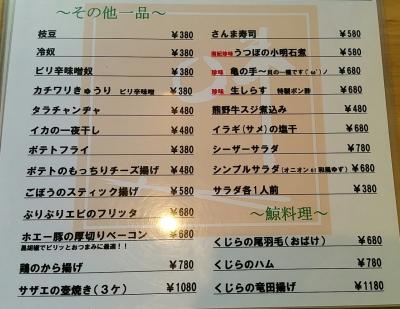 ～その他一品～
枝豆 ¥380
冷奴 ¥380
ピリ辛味噌奴 ¥380
カチワリきゅうり ピリ辛味噌 ¥380
タラチャンヂャ ¥480
イカの一夜干し ¥480
ポテトフライ ¥380
ポテトのもっちりチーズ揚げ ¥480
ごぼうのスティック揚げ ¥580
ぷりぷりエビのフリッタ ¥680
ホエー豚の厚切りベーコン ¥680
黒胡椒でピリッとおつまみに最適！！
鶏のから揚げ ¥780
サザエの壺焼き(3ケ) ¥1080
さんま寿司 ¥580
南紀珍味 うつぼの小明石煮 ¥680
珍味 亀の手～貝の一種です(´ω`)ノ ¥680
珍味 生しらす 特製ポン酢 ¥680
熊野牛スジ煮込み ¥480
イラギ(サメ)の塩干 ¥680
シーザーサラダ ¥780
シンプルサラダ(オニオン or 和風ゆず) ¥680
サラダ各1人前 ¥380
～鯨料理～
くじらの尾羽毛(おばけ) ¥680
くじらのハム ¥780
くじらの竜田揚げ ¥1180